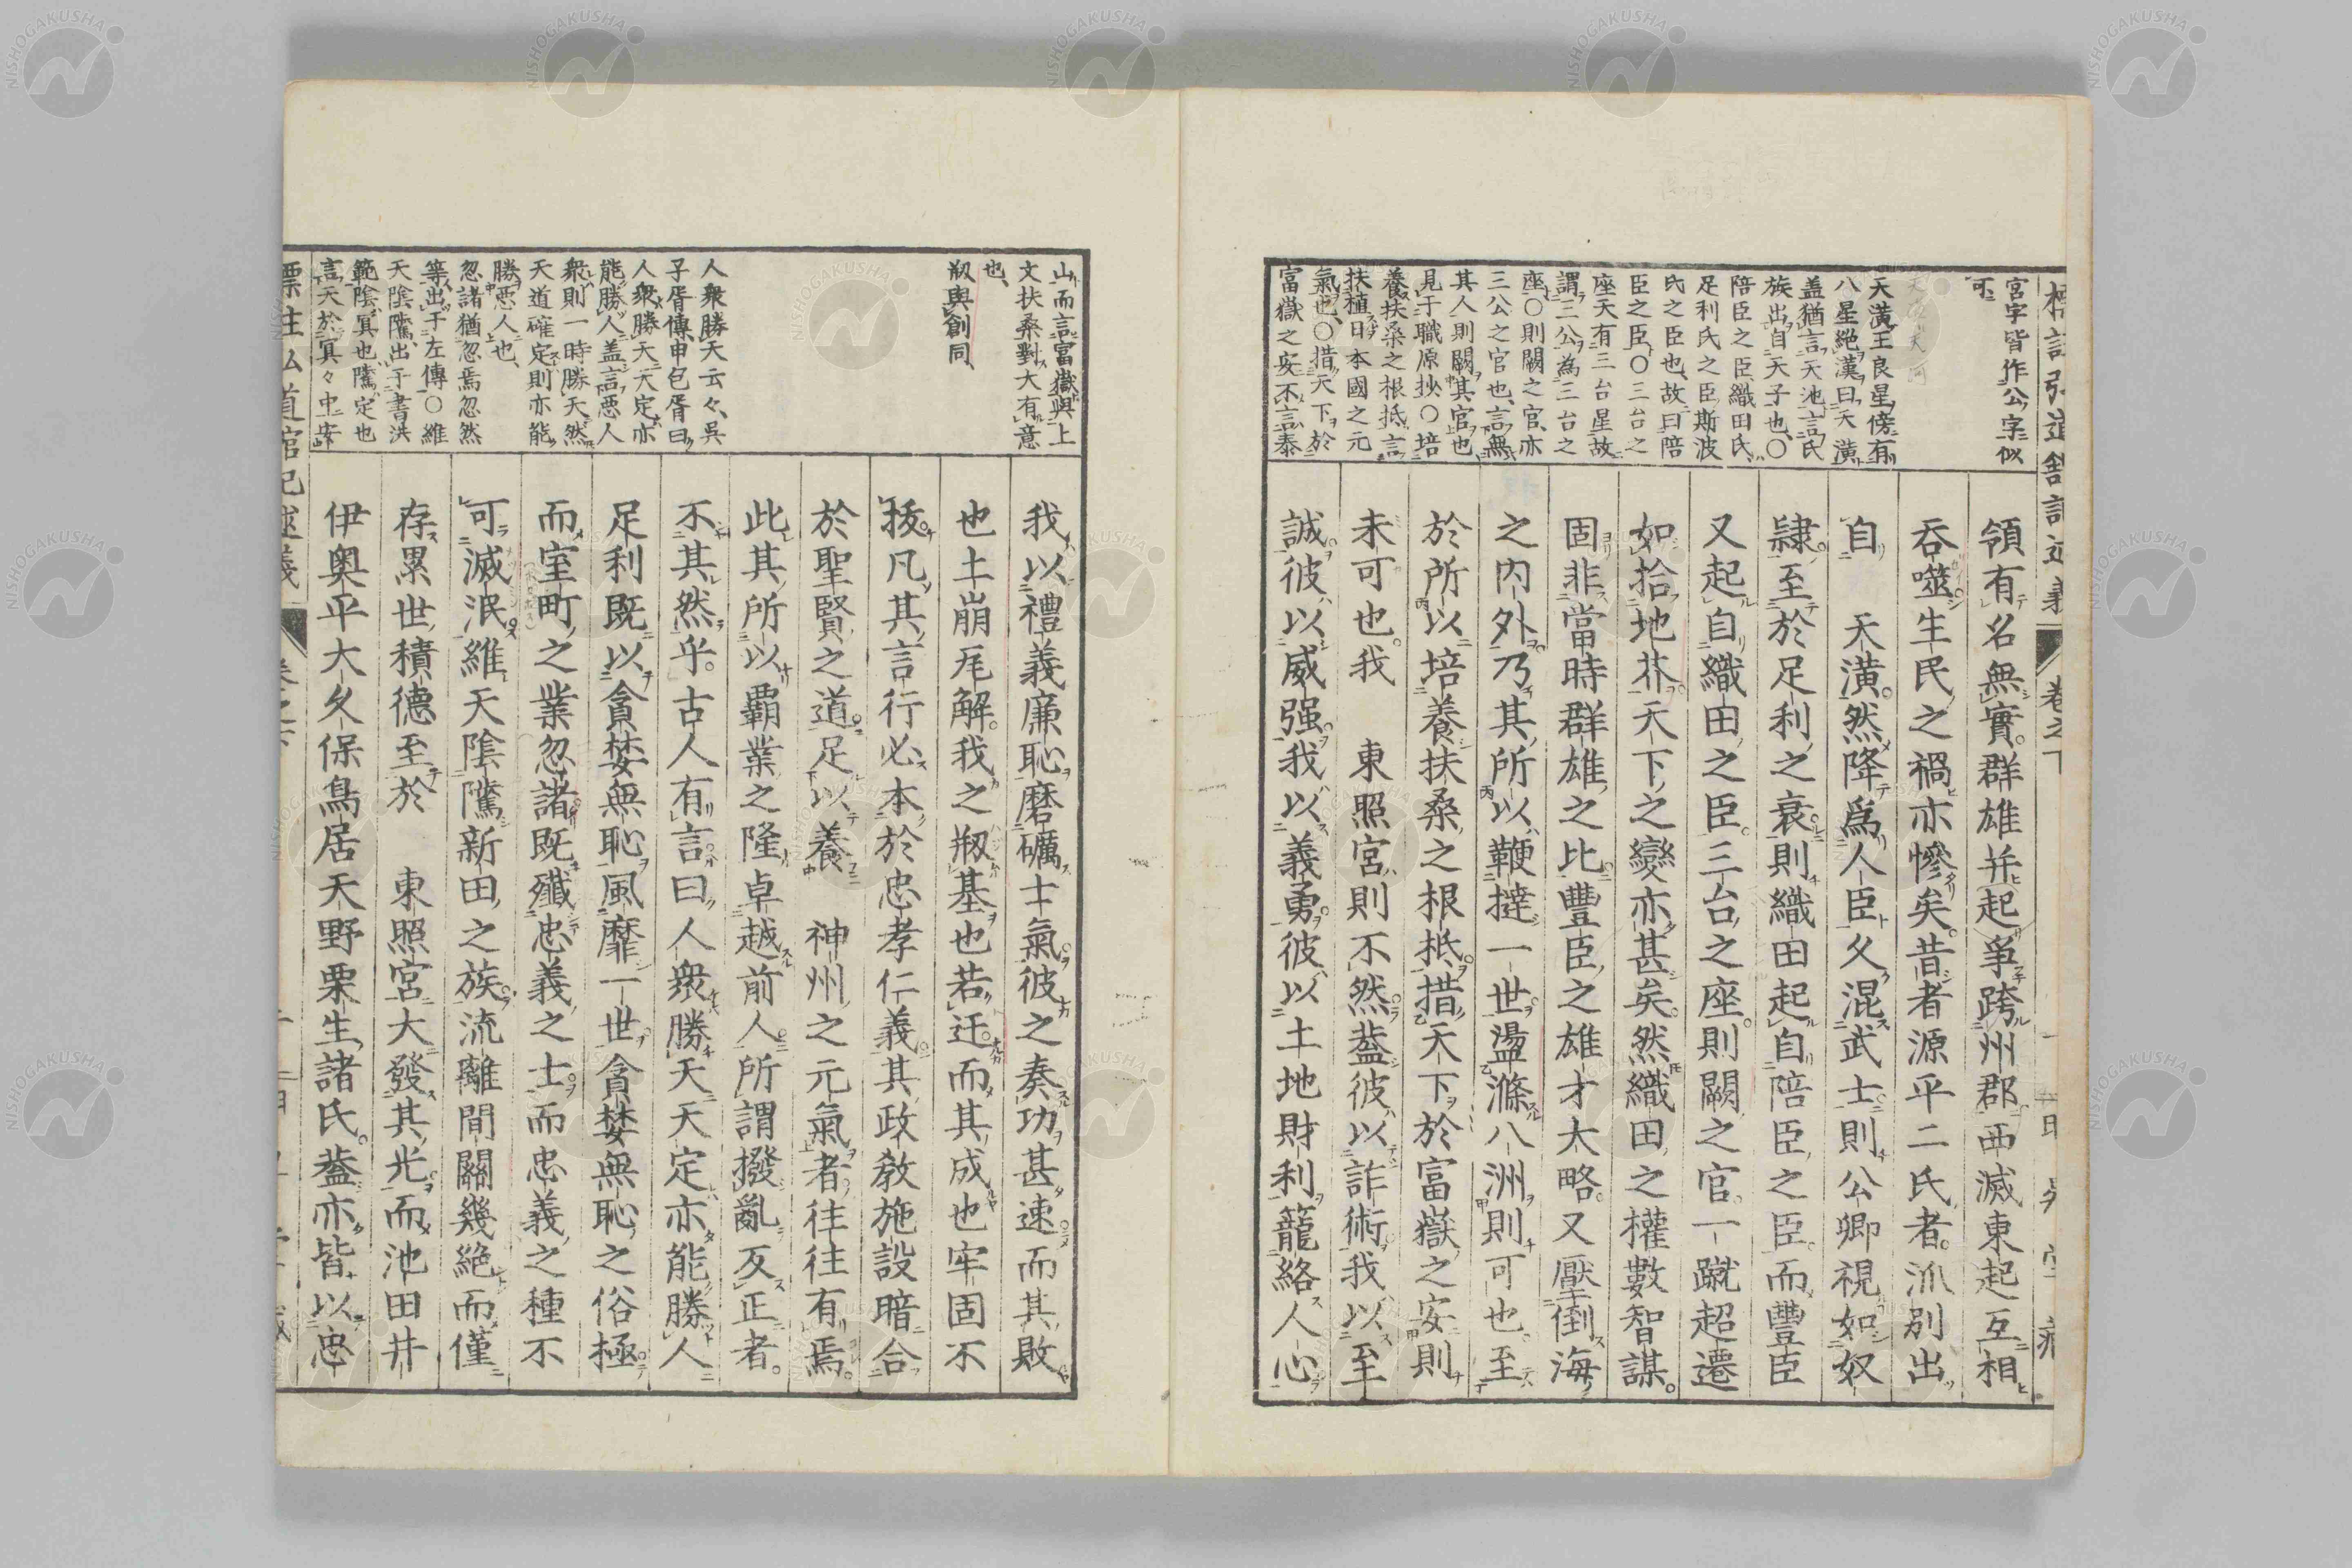 標註弘道館記述義
巻之下
宮字皆作公字似
可
天潢王良星傍有
八星絶漢曰天潢
盖猶言天池言氏
族出自天子也〇
陪臣之臣織田氏
足利氏之臣斯波
氏之臣也故曰陪
臣之臣〇三台之
座天有三台星故
謂三公為三台之
座〇則闕之官亦
三公之官也言無
其人則闕其官也
見于職原抄〇培
養扶桑之根抵言
扶植日本國之元
氣也〇措天下於
富嶽之安不言泰
領有名無實群雄并起爭跨州郡西滅東起互相
吞噬生民之禍亦慘矣昔者源平二氏者派別出
自 天潢然降爲人臣久混武士則公卿視如奴
隷至於足利之衰則織田起自陪臣之臣而豐臣
又起自織田之臣三台之座則闕之官一蹴超遷
如拾地芥天下之變亦甚矣然織田之權數智謀
固非當時群雄之比豐臣之雄才大略又壓倒海
之内外乃其所以鞭撻一世盪滌八洲則可也至
於所以培養扶桑之根抵措天下於富嶽之安則
未可也我 東照宮則不然葢彼以詐術我以至
誠彼以威强我以義勇彼以土地財利籠絡人心
山而言富嶽與上
文扶桑對大有意
也
剏與創同
人衆勝天云々呉
子胥傳申包胥曰
人衆勝天天定亦
能勝人盖言惡人
衆則一時勝天然
天道確定則亦能
勝惡人也
忽諸猶忽焉忽然
等出于左傳〇維
天陰隲出于書洪
範陰冥也隲定也
言天於冥々中安
我以禮義廉恥磨礪士氣彼之奏功甚速而其敗
也土崩瓦解我之剏基也若迂而其成也牢固不
拔凡其言行必本於忠孝仁義其政教施設暗合
於聖賢之道足以養 神州之元氣者往往有焉
此其所以覇業之隆卓越前人所謂撥亂反正者
不其然乎古人有言曰人衆勝天天定亦能勝人
足利既以貪婪無恥風靡一世貪婪無恥之俗極
而室町之業忽諸既殱忠義之士而忠義之種不
可滅泯維天陰隲新田之族流離間關幾絶而僅
存累世積德至於 東照宮大發其光而池田井
伊奥平大久保鳥居天野栗生諸氏葢亦皆以忠
標註弘道館記述義